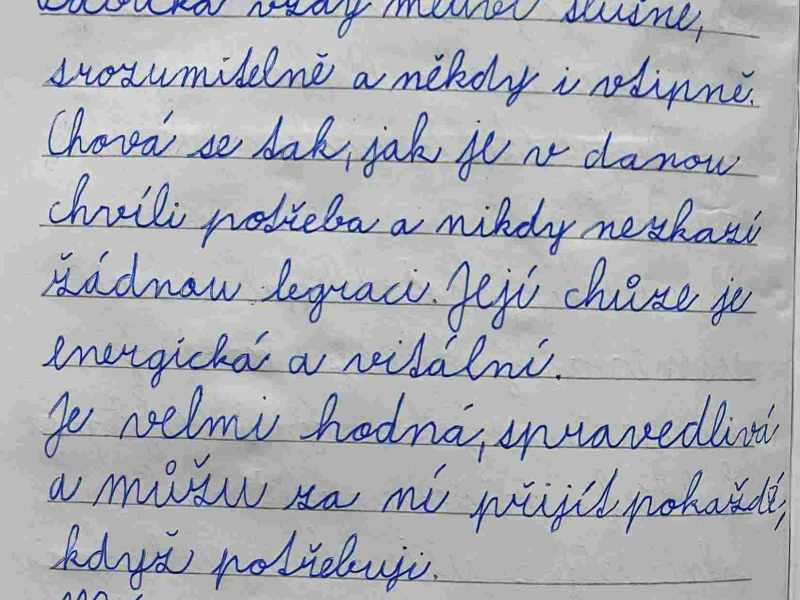 vždy mluví slušně,
srozumitelně a někdy i vtipně.
Chová se tak, jak je v danou
chvíli potřeba a nikdy nezkazí
žádnou legraci. Její chůze je
energická a vitální.
Je velmi hodná, spravedlivá
a můžu za ní přijít pokaždé,
když potřebuji.